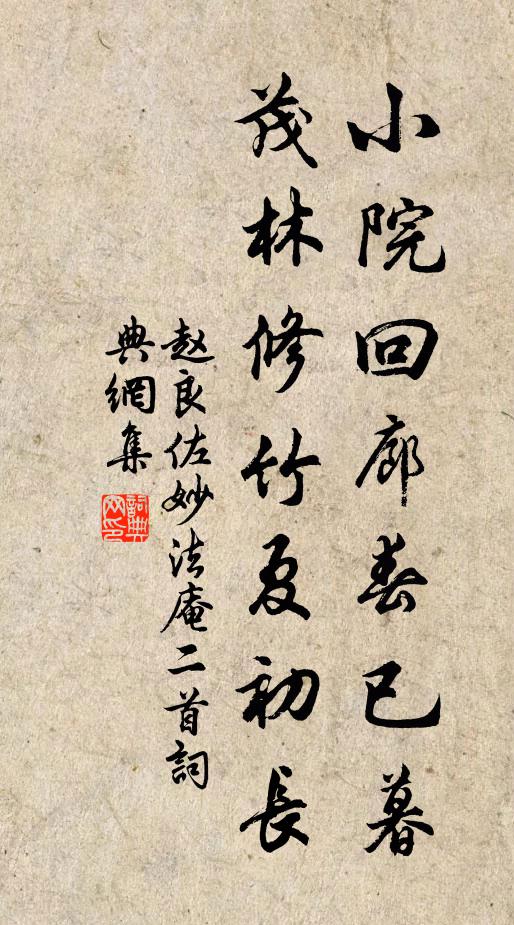 小院回廊春已暮
茂林修竹夏初長
赵良佐妙法庵二首詞
典網集
詞典
网印